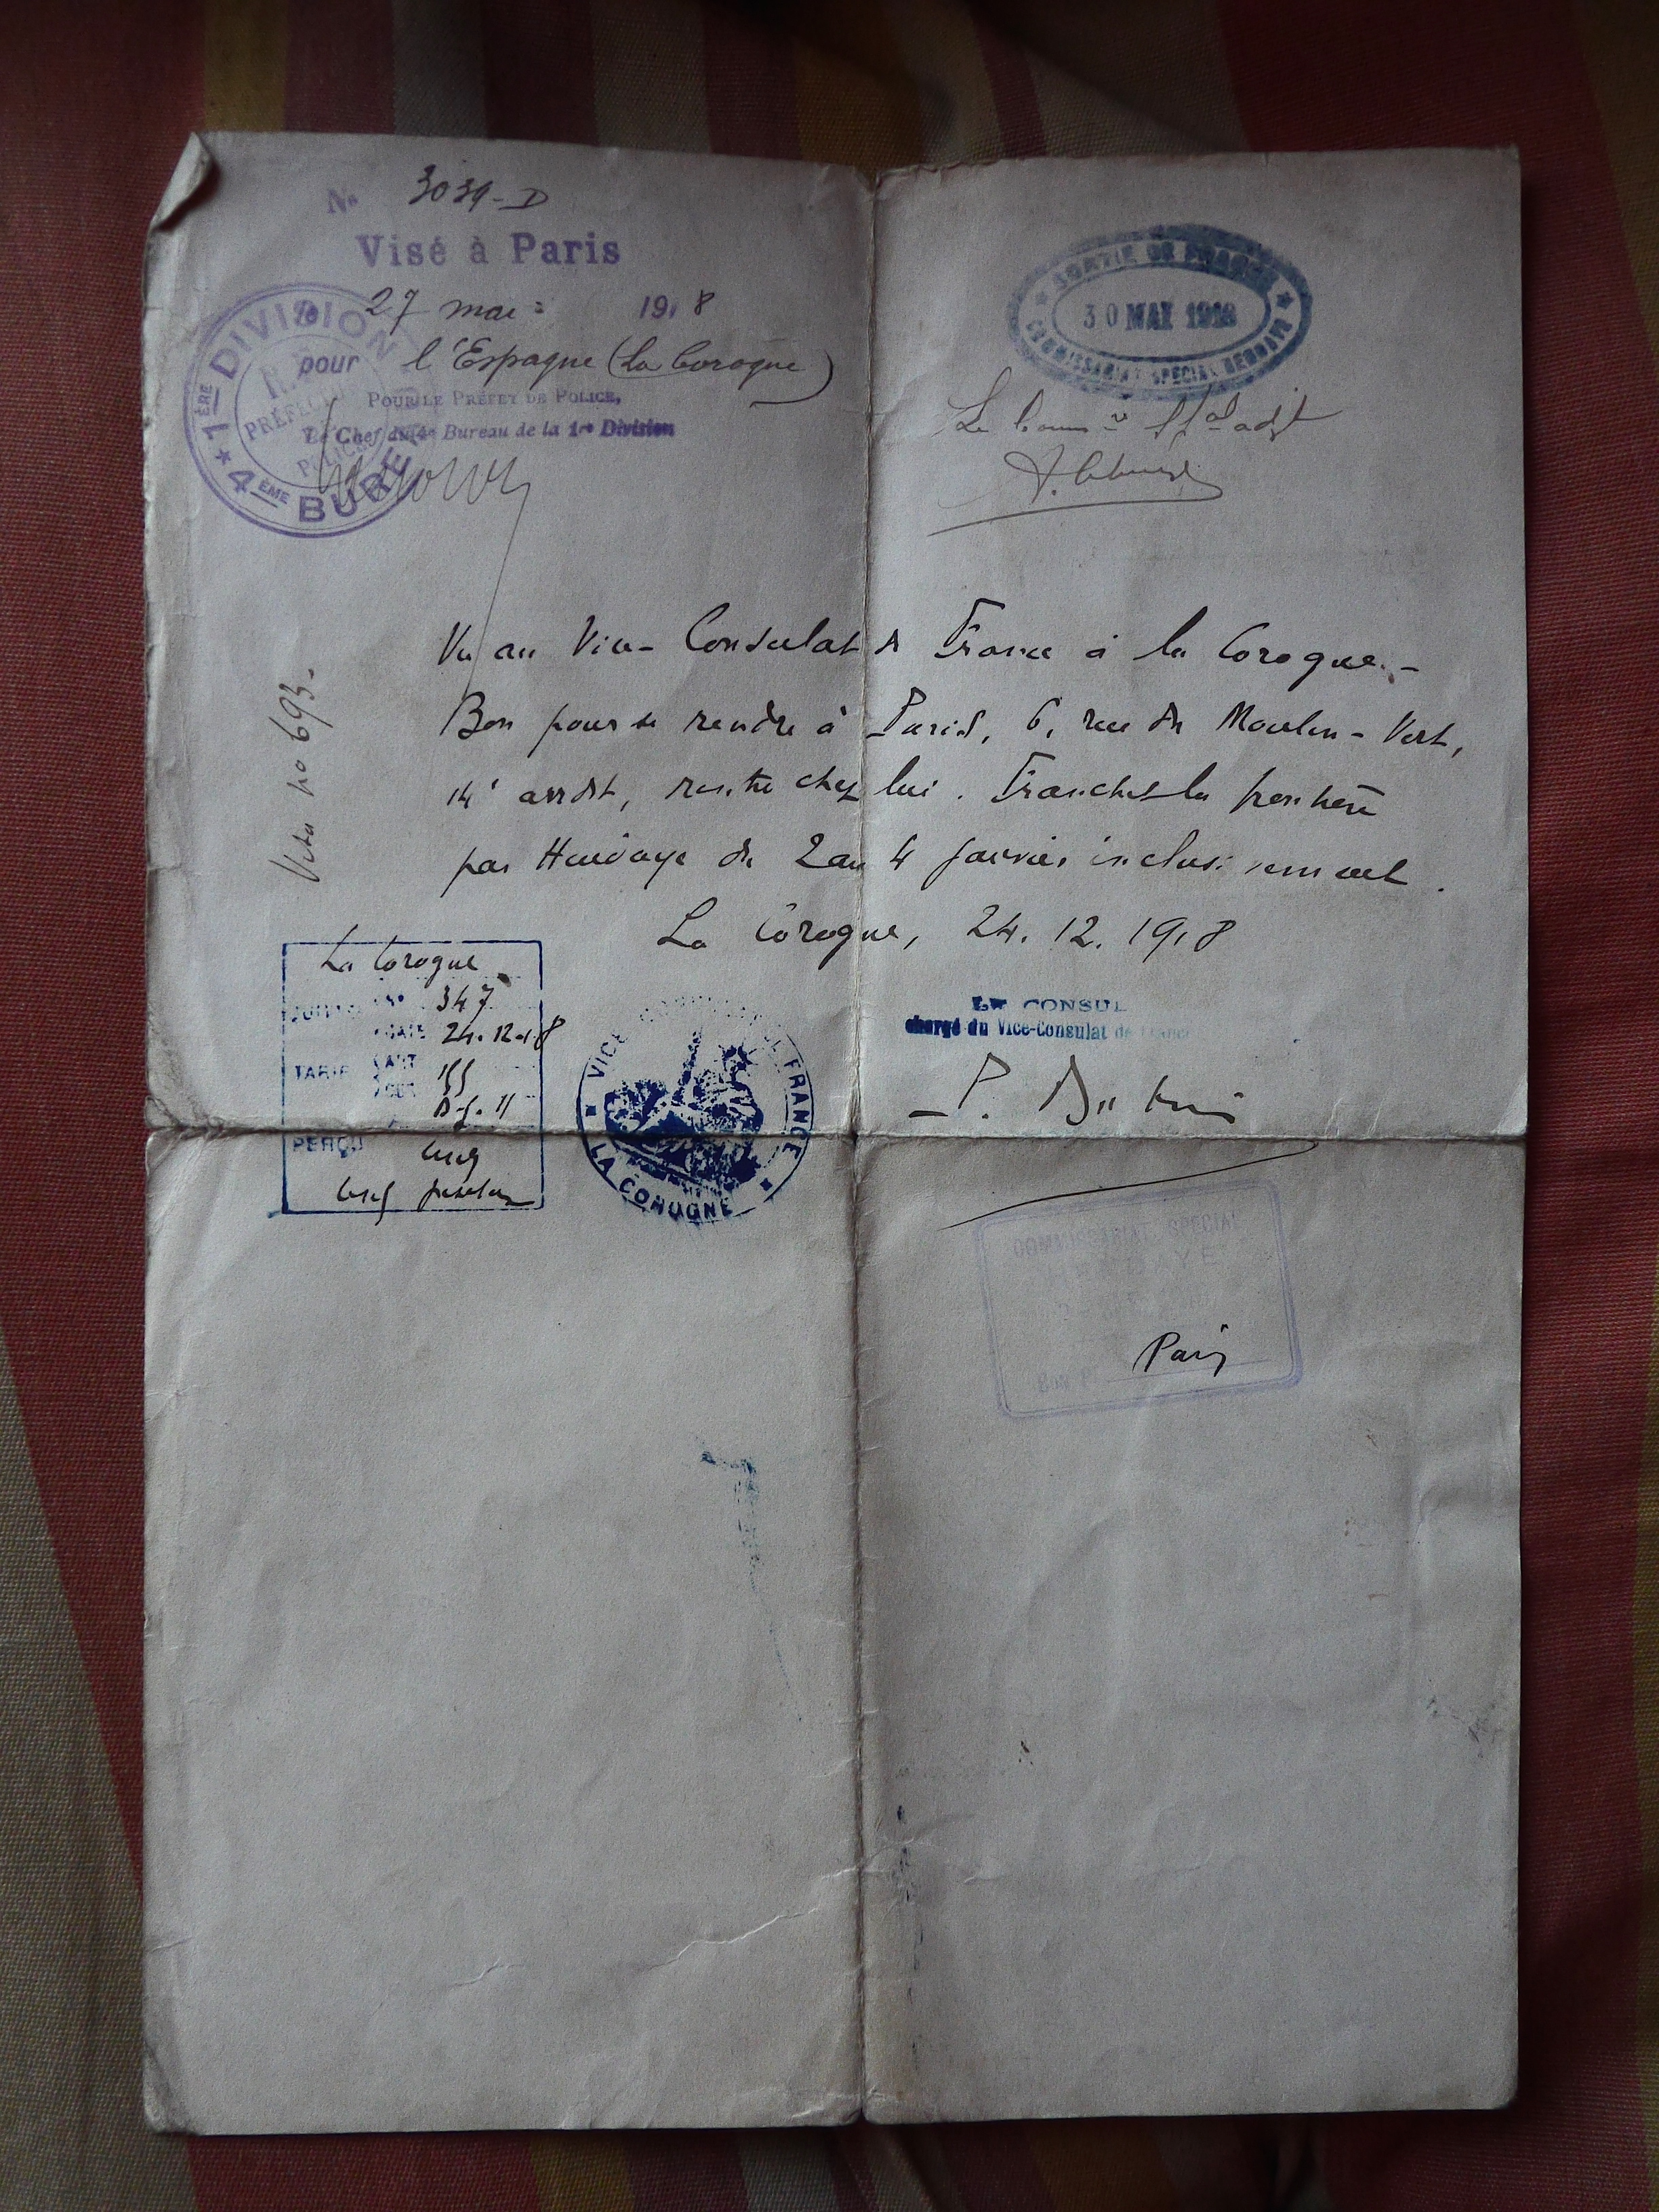 No 3039-D
Visé à Paris
le 27 mai 1918
pour l'Espagne (La Corogne)
POUR LE PRÉFET DE POLICE,
Le Chef du 4e Bureau de la 1re Division
1ÈRE DIVISION
PRÉFECTURE
POLICE
4ÈME BUREAU
SORTIE DE FRANCE
30 MAI 1918
COMMISSARIAT SPECIAL HENDAYE
Vu au Vice-Consulat de France à la Corogne.-
Bon pour se rendre à Paris, 6, rue du Moulin-Vert,
14e arrdt, rentre chez lui. Franchet la frontière
par Hendaye du 2 au 4 janvier inclusivement.
La Corogne, 24.12.1918
Visa no 693-
La Corogne
No 347
DATE 24-12-18
TARIF ART 155
PERÇU cinq
VICE CONSULAT DE FRANCE
LA COROGNE
LE CONSUL
chargé du Vice-Consulat de France
COMMISSARIAT SPECIAL
HENDAYE
BON Pr Paris